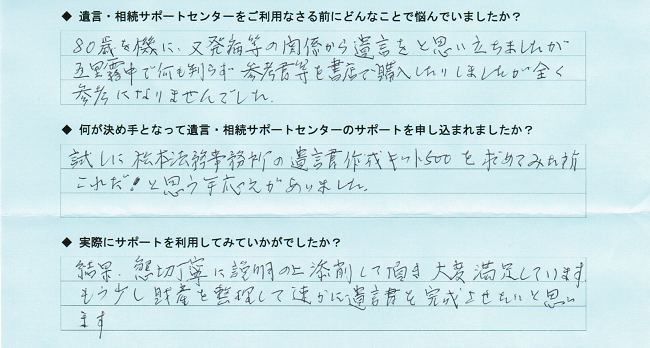 ◆ 遺言・相続サポートセンターをご利用なさる前にどんなことで悩んでいましたか？
80歳を機に、又発病等の関係から遺言をと思い立ちましたが
五里霧中で何も判らず参考書等を書店で購入したりしましたが全く
参考になりませんでした。
◆ 何が決め手となって遺言・相続サポートセンターのサポートを申し込まれましたか？
試しに松本法務事務所の遺言書作成キット500を求めてみた所
これだ！と思う手応えがありました。
◆ 実際にサポートを利用してみていかがでしたか？
結果、懇切丁寧に説明の上添削して頂き大変満足しています。
もう少し財産を整理して速かに遺言書を完成させたいと思い
ます